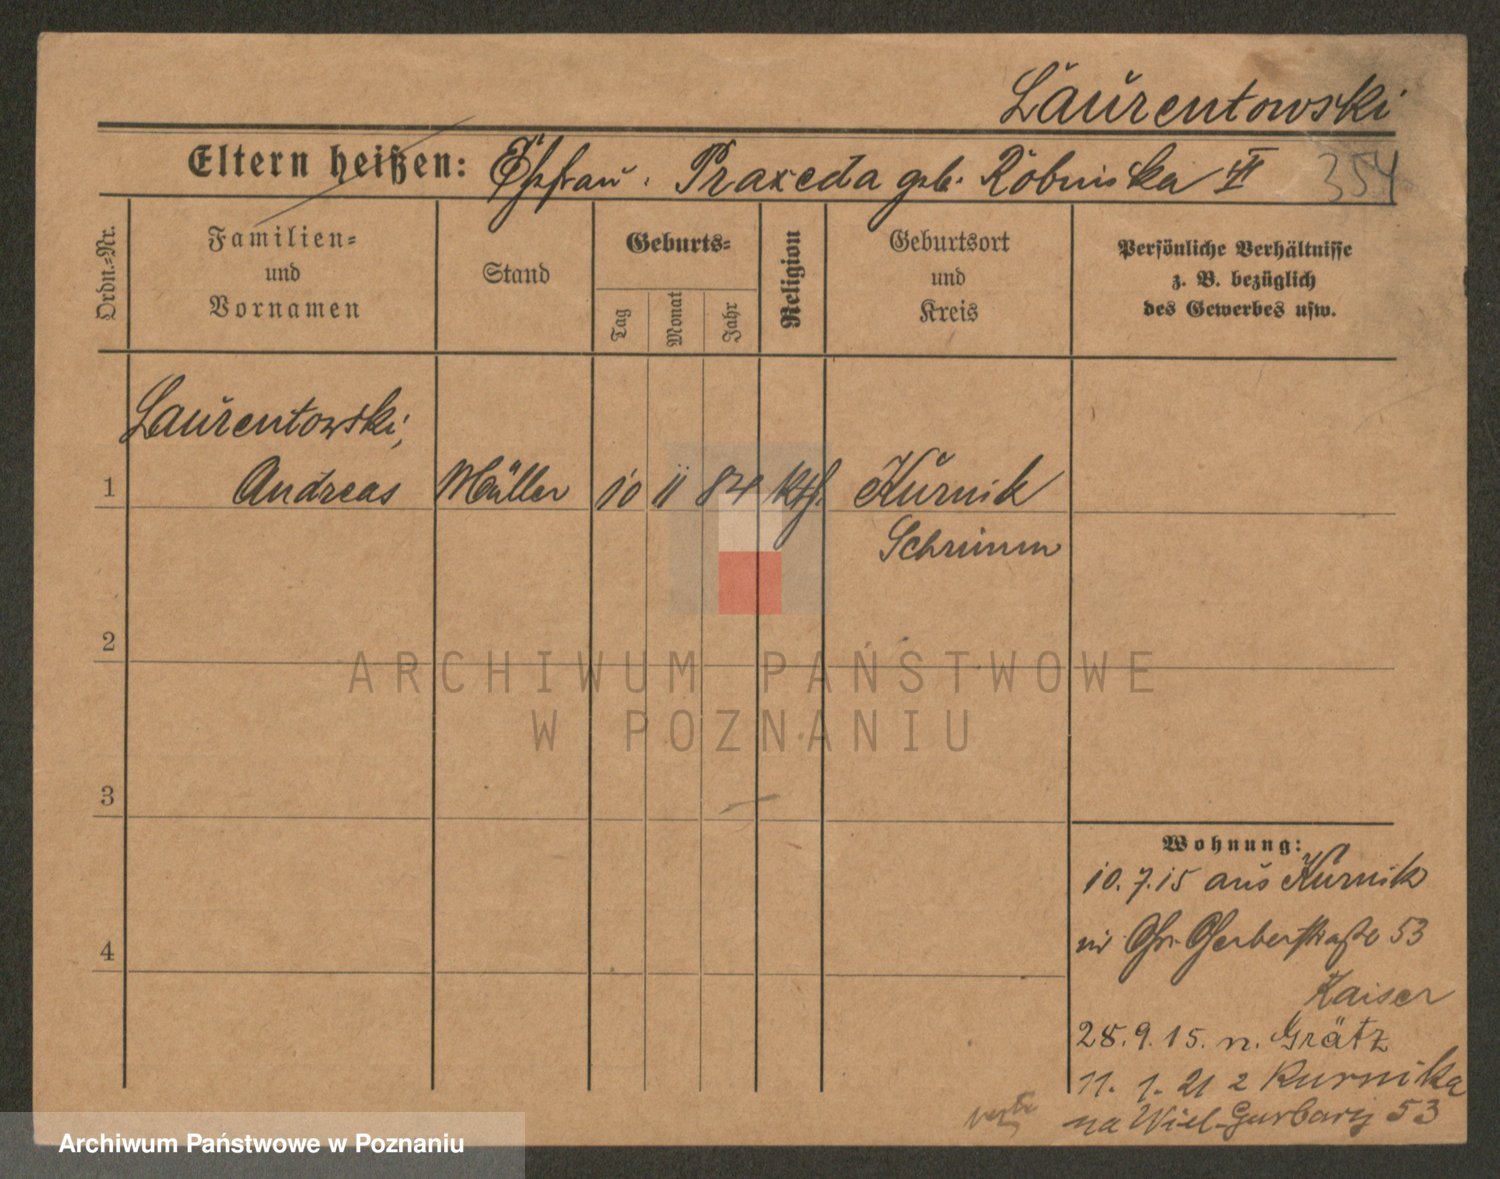 Laurentowski
Eltern heißen: Ehefrau. Praxeda geb. Robinska VII 354
Ordn.=Nr.
Familien=
und
Vornamen
Stand
Geburts=
Tag
Monat
Jahr
Religion
Geburtsort
und
Kreis
Persönliche Verhältnisse
z. B. bezüglich
des Gewerbes usw.
Laurentowski,
1 Andreas Müller 10 11 84 kth. Kurnik
Schrimm
2
ARCHIWUM PAŃSTWOWE
W POZNANIU
3
Wohnung:
10.7.15 aus Kurnik
4
Gr. Gerberstraße 53
Kaiser
28.9.15. n. Grätz
11. 1. 21 z Kurnika
na Wiel-Garbary 53
Archiwum Państwowe w Poznaniu